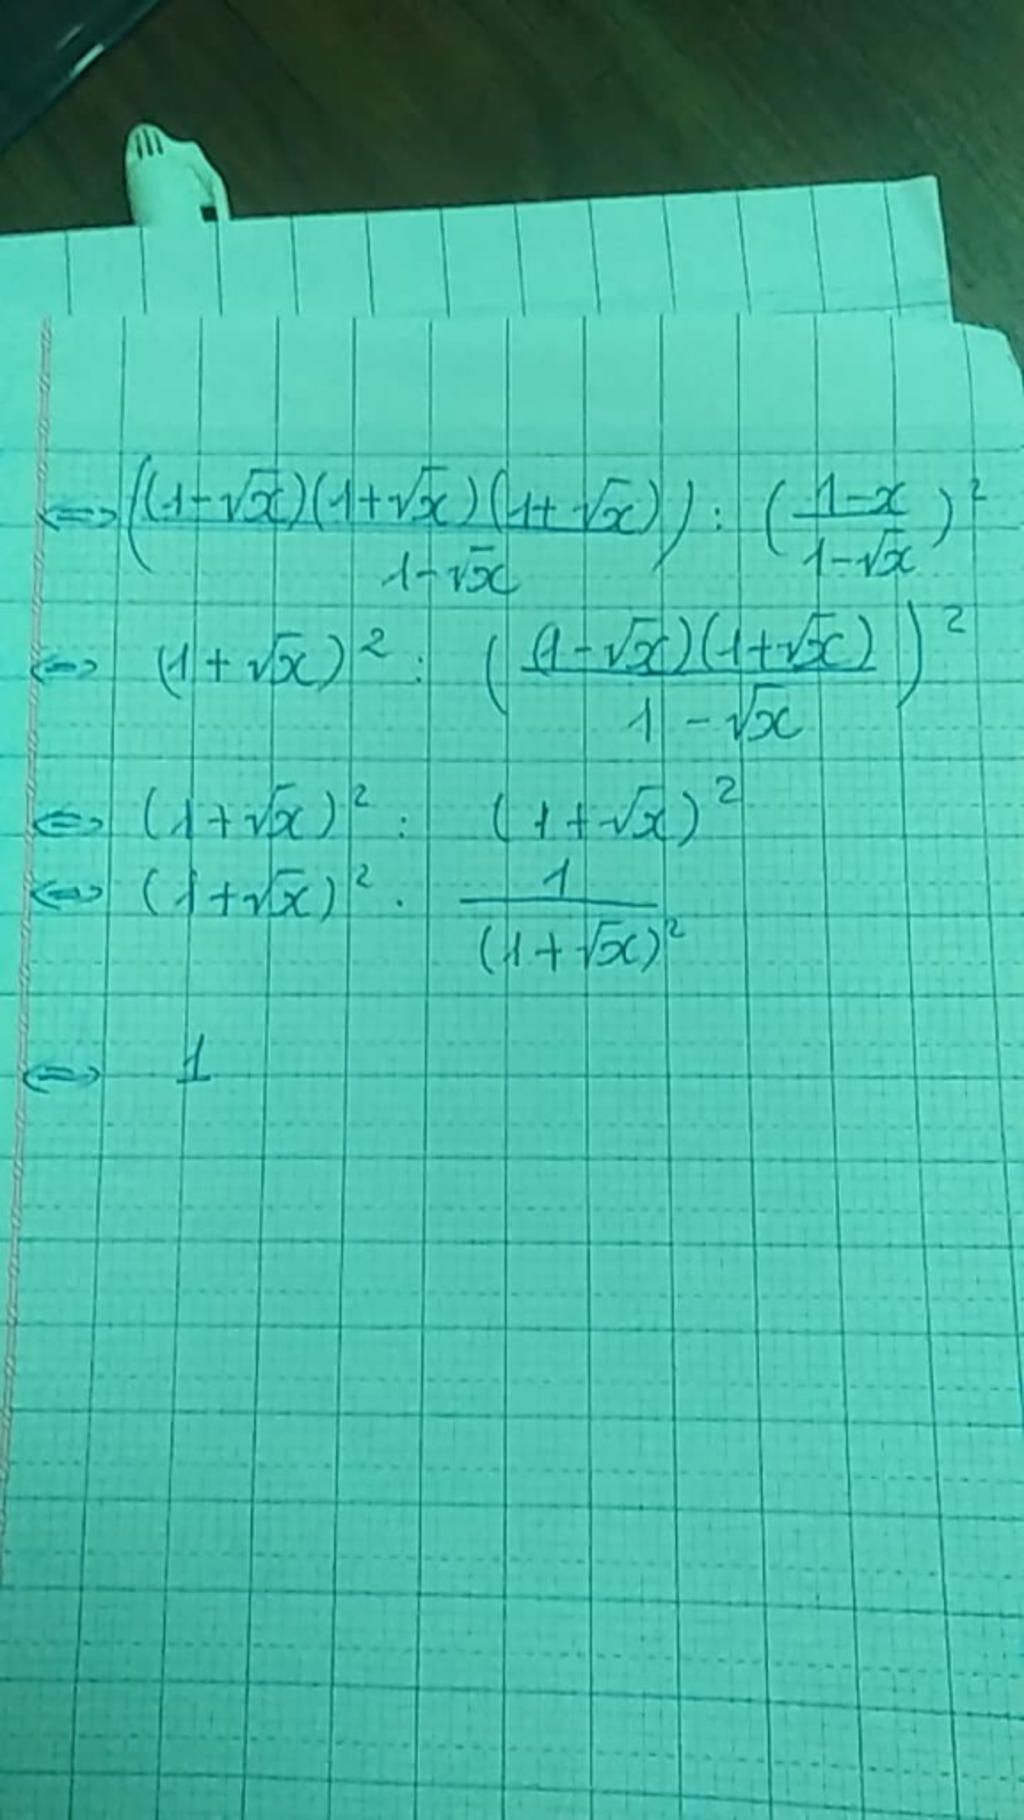 ⇔ (((1-√x)(1+√x)(1+√x))/(1-√x)) : ((1-x)/(1-√x))²
⇔ (1+√x)² : (((1-√x)(1+√x))/(1-√x))²
⇔ (1+√x)² : (1+√x)²
⇔ (1+√x)² . 1/(1+√x)²
⇔ 1